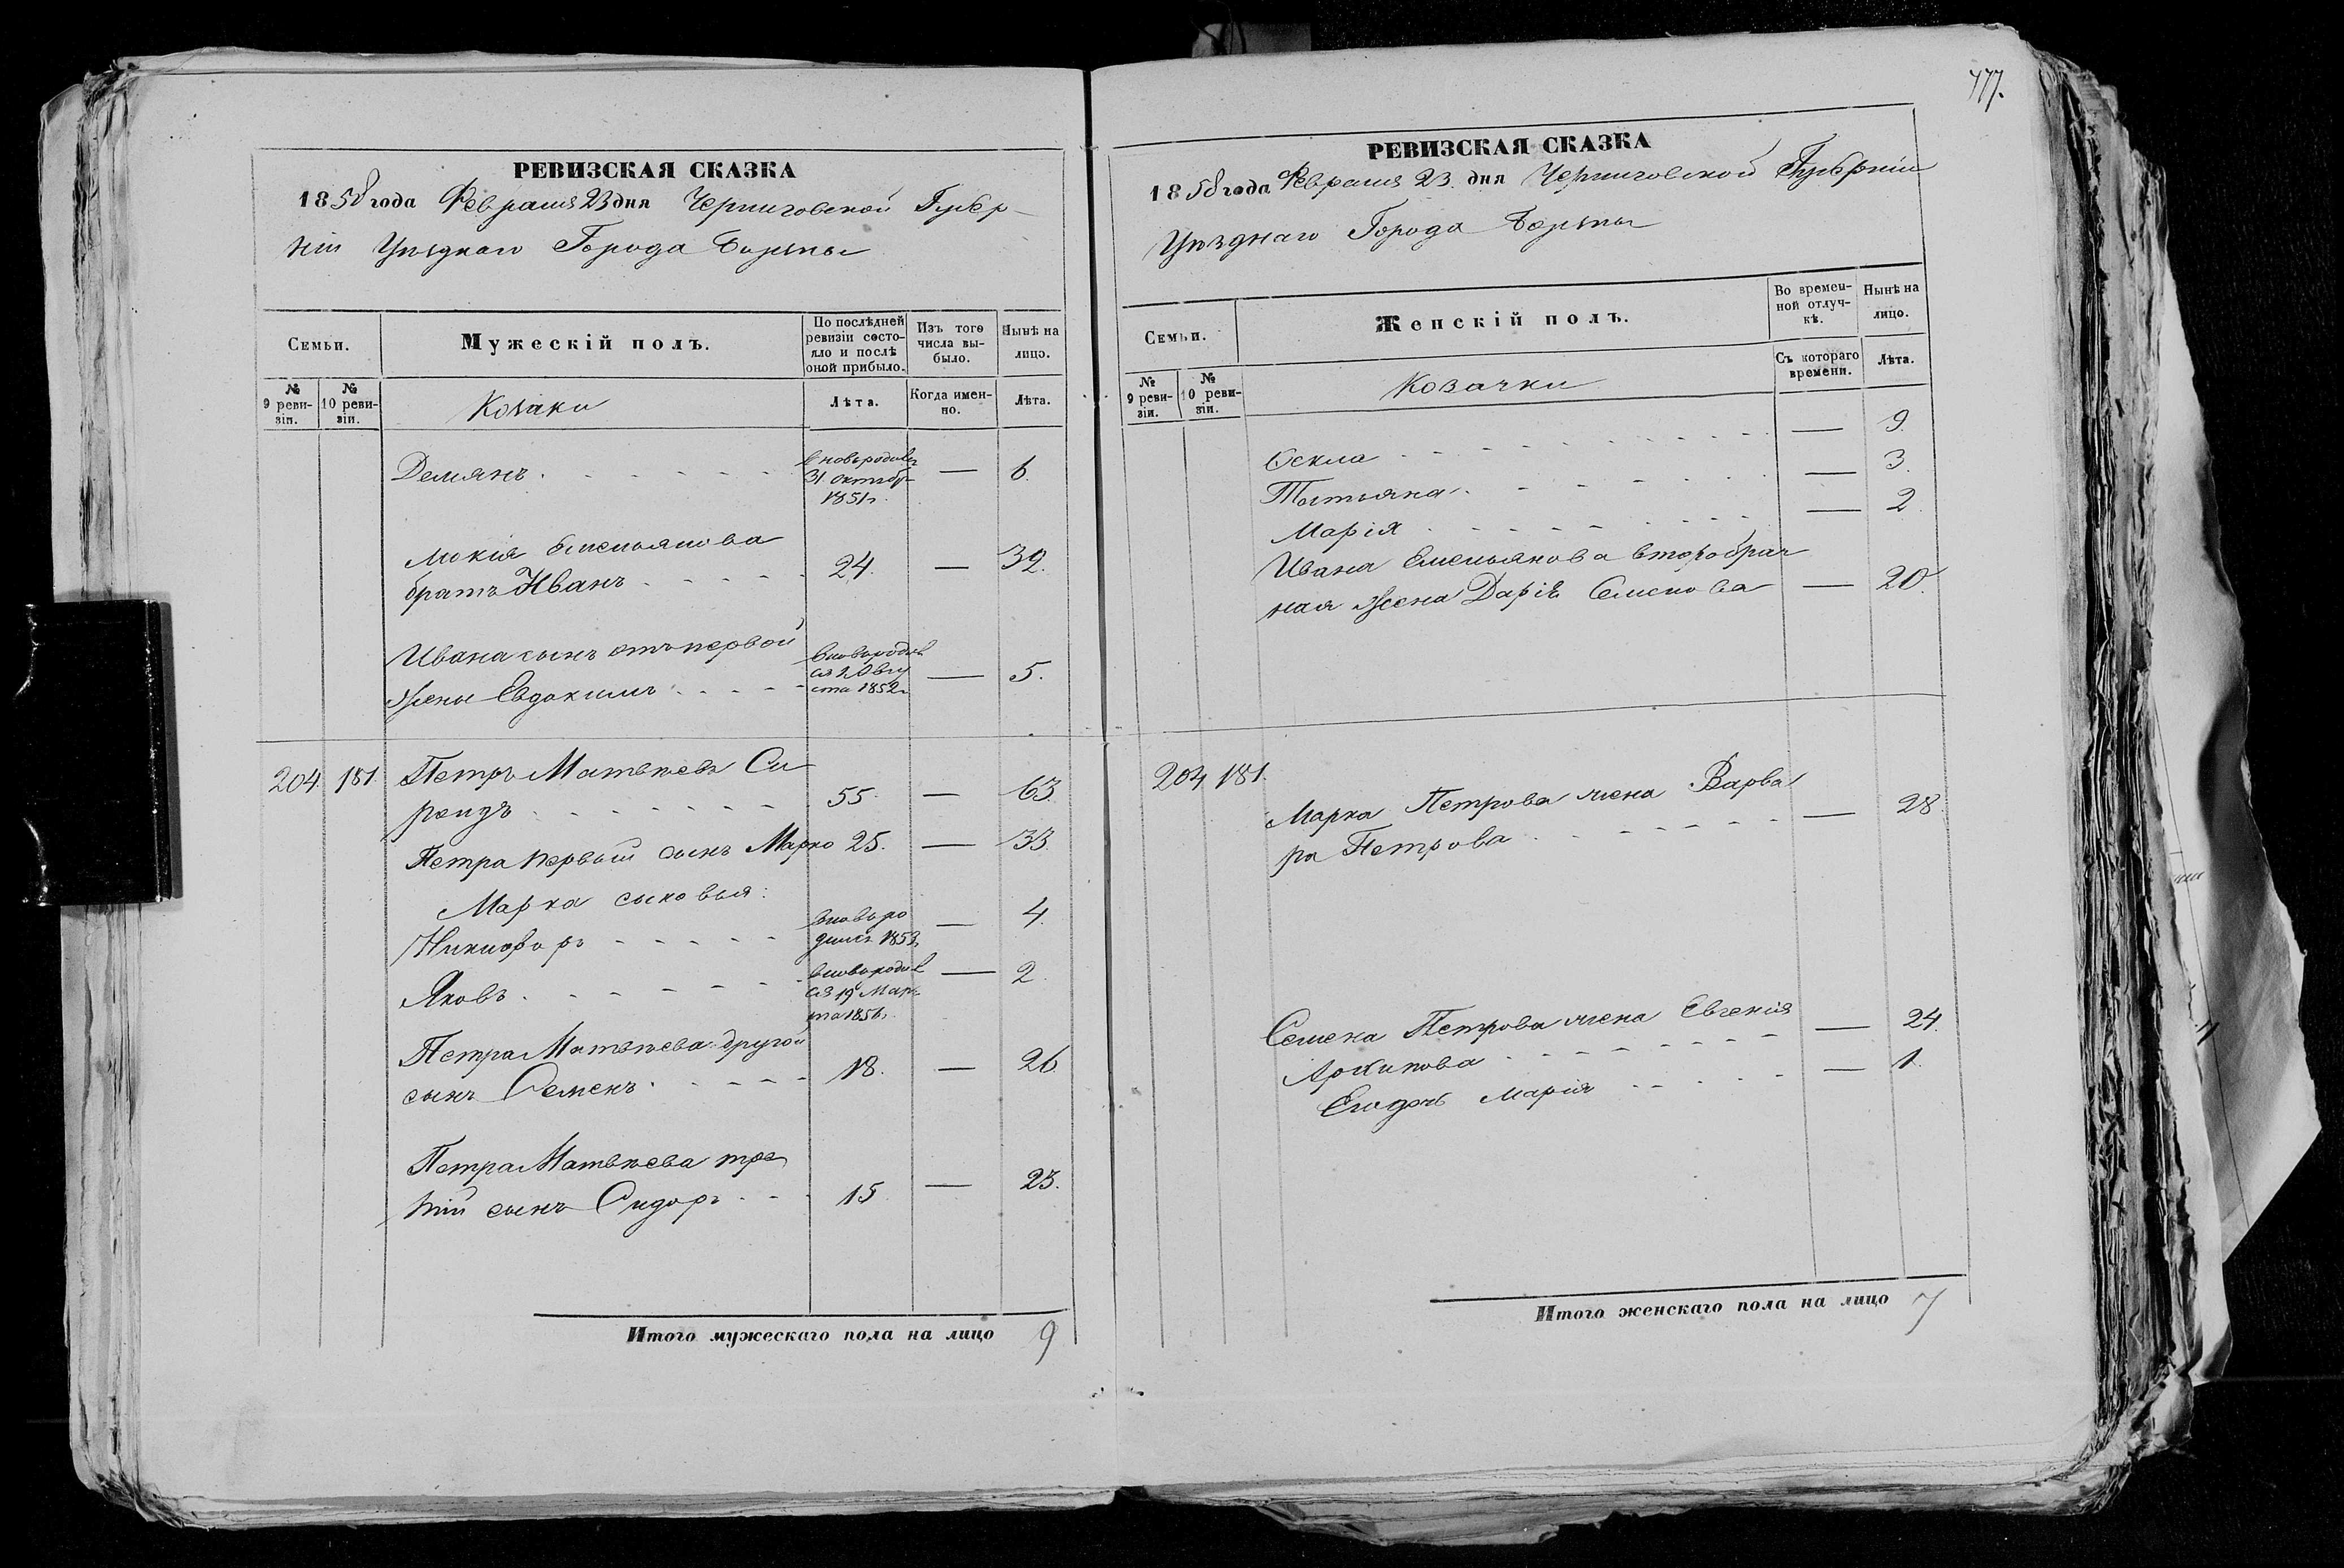 РЕВИЗСКАЯ СКАЗКА
1858 года Февраля 23 дня Черниговской Губер-
ніи Уѣзднаго Города Борзны
Семьи.
Мужескій полъ.
По послѣдней ревизіи состо-
яло и послѣ
оной прибыло.
Изъ того
числа вы-
было.
Нынѣ на
лицо.
№
9 реви-
зіи.
№
10 реви-
зіи.
Козаки
Лѣта.
Когда имен-
но.
Лѣта.
Демянъ
вновь родивс
31 октяб
1851 г.
— 6.
Мокія Емельянова
братъ Иванъ 24. — 32.
Ивана сынъ отъ первой
жены Евдокимъ
вновь родив
ся 1 Авгу
ста 1852 г.
— 5.
204. 181. Петръ Матвѣевъ Си
рендъ 55. — 63.
Петра первый сынъ Марко 25. — 33.
Марка сыновья:
Никифоръ
вновь ро
дился 1853 г.
— 4.
Яковъ
вновь родив
ся 19 Мар
та 1856 г.
— 2.
Петра Матвѣева другой
сынъ Семенъ 18. — 26.
Петра Матвѣева тре
тій сынъ Сидоръ 15 — 23.
Итого мужескаго пола на лицо 9
477.
РЕВИЗСКАЯ СКАЗКА
1858 года Февраля 23 дня Черниговской Губерніи
Уѣзднаго Города Борзны
Семьи.
Женскій полъ.
Во времен-
ной отлуч-
кѣ.
Нынѣ на
лицо.
№
9 реви-
зіи.
№
10 реви-
зіи.
Козачки
Съ котораго
времени.
Лѣта.
Фекла — 9.
Татьяна — 3.
Марія — 2
Ивана Емельянова второбрач
ная жена Дарія Семенова — 20.
204 181.
Марка Петрова жена Варва
ра Петрова — 28.
Семена Петрова жена Евгенія
Архипова — 24.
Его дочь Марія — 1.
Итого женскаго пола на лицо 7